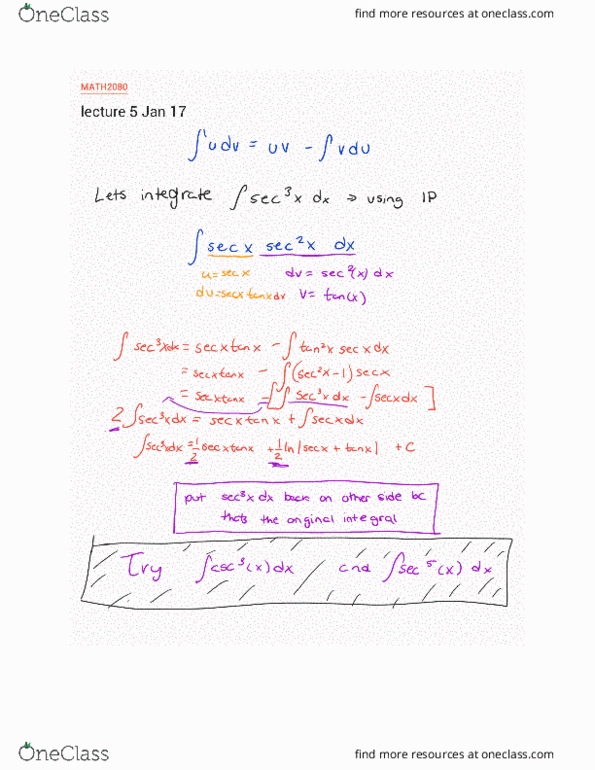 OneClass
find more resources at oneclass.com
MATH2080
lecture 5 Jan 17
∫u dv = uv - ∫v du
Lets integrate ∫sec³x dx → using IP
∫ sec x sec²x dx
u = sec x dv = sec²(x) dx
du = secx tanx dx V = tan(x)
∫ sec³x dx = secx tanx - ∫tan²x sec x dx
= secx tanx - ∫(sec²x - 1) sec x
= secx tanx - [∫ sec³x dx - ∫secx dx ]
2 ∫sec³x dx = secx tanx + ∫secx dx
∫sec³x dx = 1/2 secx tanx + 1/2 ln|secx + tanx| + C
put sec³x dx back on other side bc
thats the original integral
Try ∫csc³(x) dx / and ∫sec⁵(x) dx
OneClass
find more resources at oneclass.com